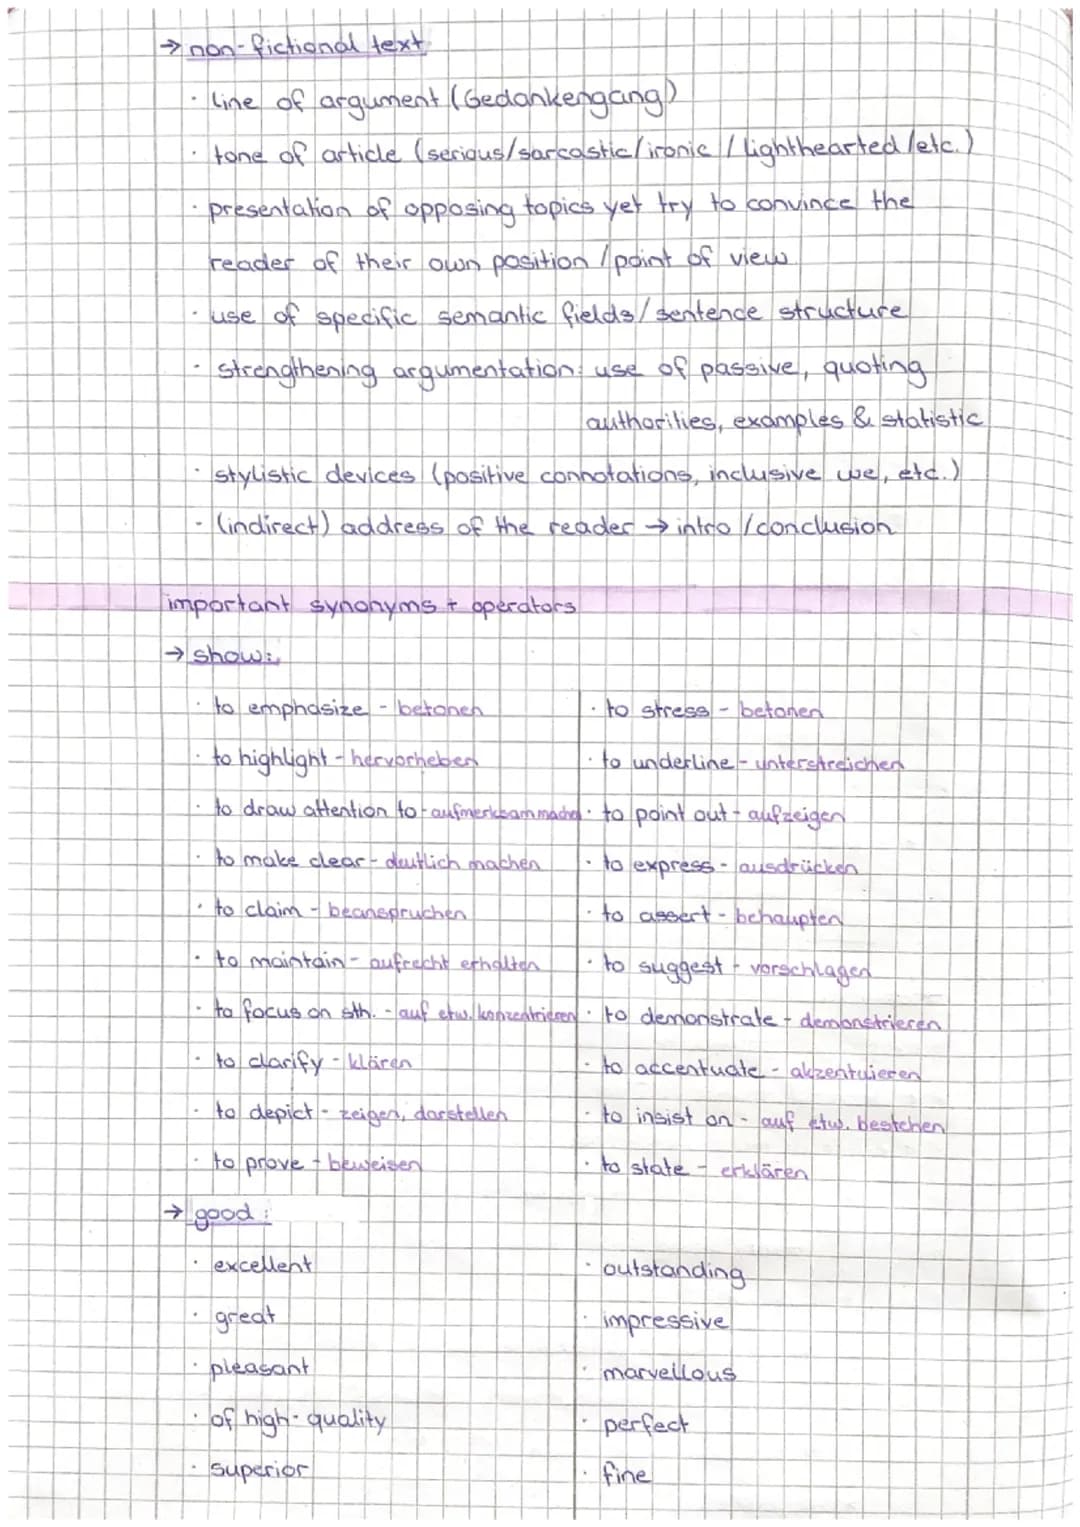 → non-fictional text
· line of argument (Gedankengang)
· tone of article (serious/sarcastic/ironic / lighthearted/etc.)
· presentation of opposing topics yet try to convince the
reader of their own position / point of view
· use of specific semantic fields/sentence structure
· strengthening argumentation: use of passive, quoting
authorities, examples & statistic
· stylistic devices (positive connotations, inclusive we, etc.)
· (indirect) address of the reader → intro / conclusion
important synonyms + operators
→ show:
· to emphasize - betonen · to stress - betonen
· to highlight - hervorheben · to underline - unterstreichen
· to draw attention to - aufmerksam machen · to point out - aufzeigen
· to make clear - deutlich machen · to express - ausdrücken
· to claim - beanspruchen · to assert - behaupten
· to maintain - aufrecht erhalten · to suggest - vorschlagen
· to focus on sth. - auf etw. konzentrieren · to demonstrate - demonstrieren
· to clarify - klären · to accentuate - akzentuieren
· to depict - zeigen, darstellen · to insist on - auf etw. bestehen
· to prove - beweisen · to state - erklären
→ good:
· excellent · outstanding
· great · impressive
· pleasant · marvellous
· of high-quality · perfect
· superior · fine